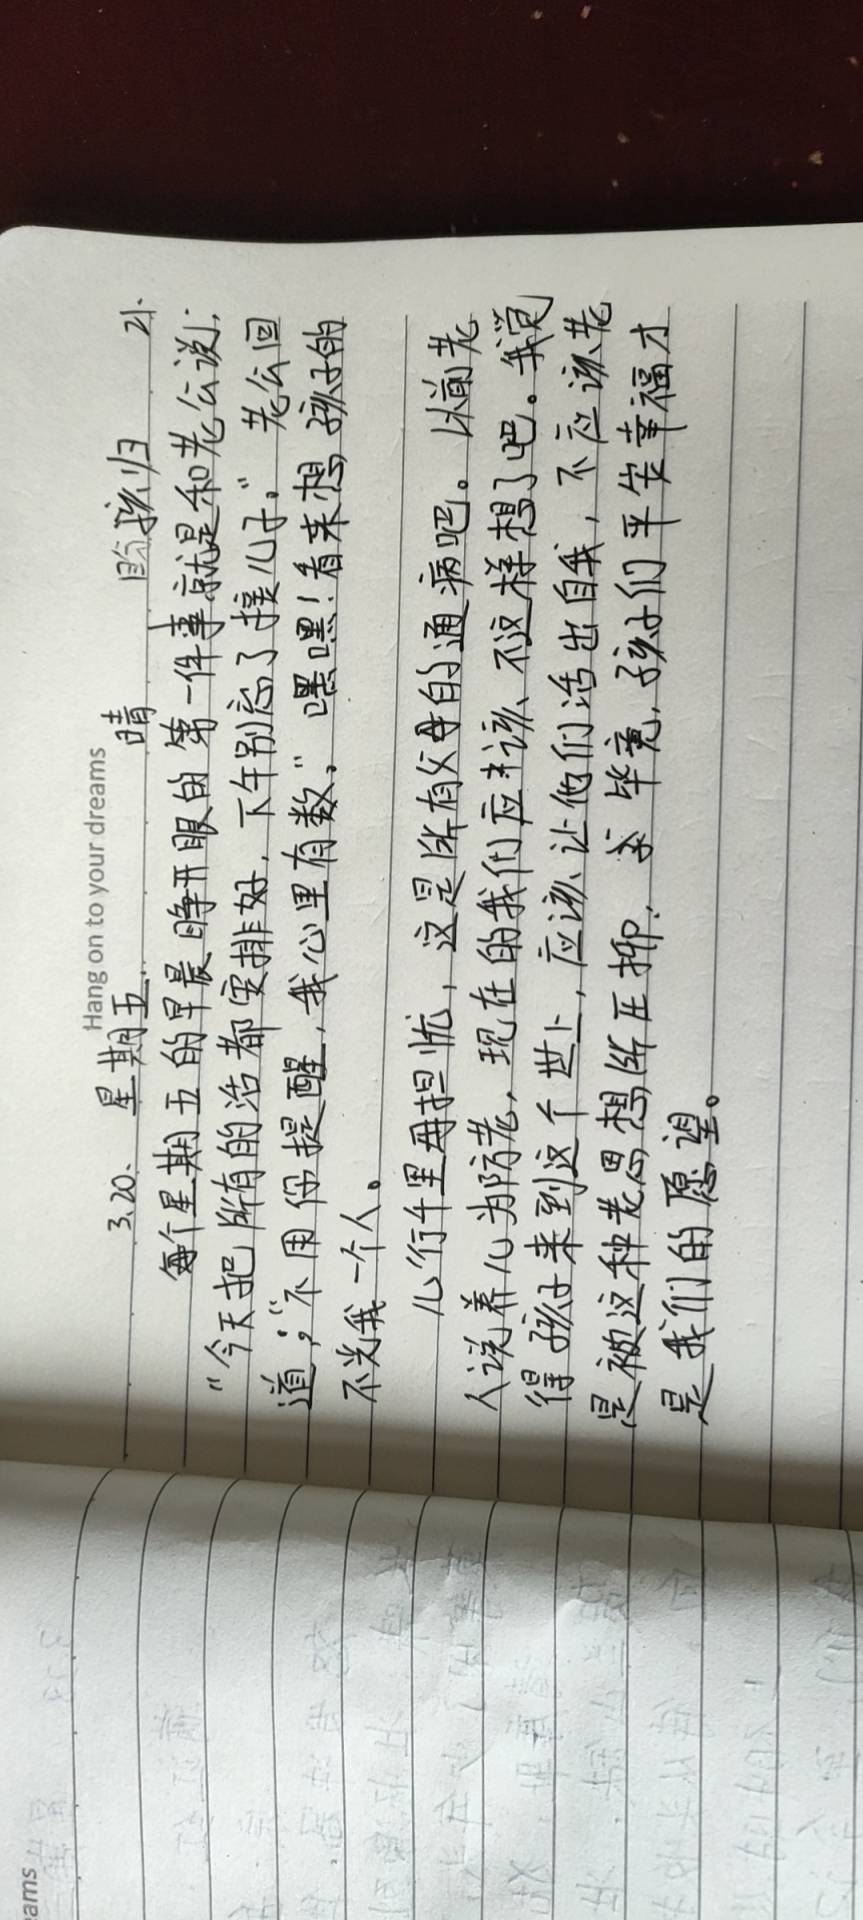 Hang on to your dreams
3.20. 星期五. 晴 盼孩归 21.
每个星期五的早晨睁开眼的第一件事就是和老公说:
“今天把所有的活都安排好,下午别忘了接儿子。”老公回
道:“不用你提醒,我心里有数。”嘿嘿!看来想孩子的
不光我一个人。
儿行千里母担忧,这是所有父母的通病吧。以前老
人说养儿为防老,现在的我们应该不这样想了吧。我觉
得孩子来到这个世上,应该让他们活出自我,不应该老
是被这种老思想所压抑. 毕竟,孩子们平安幸福才
是我们的愿望。
eams